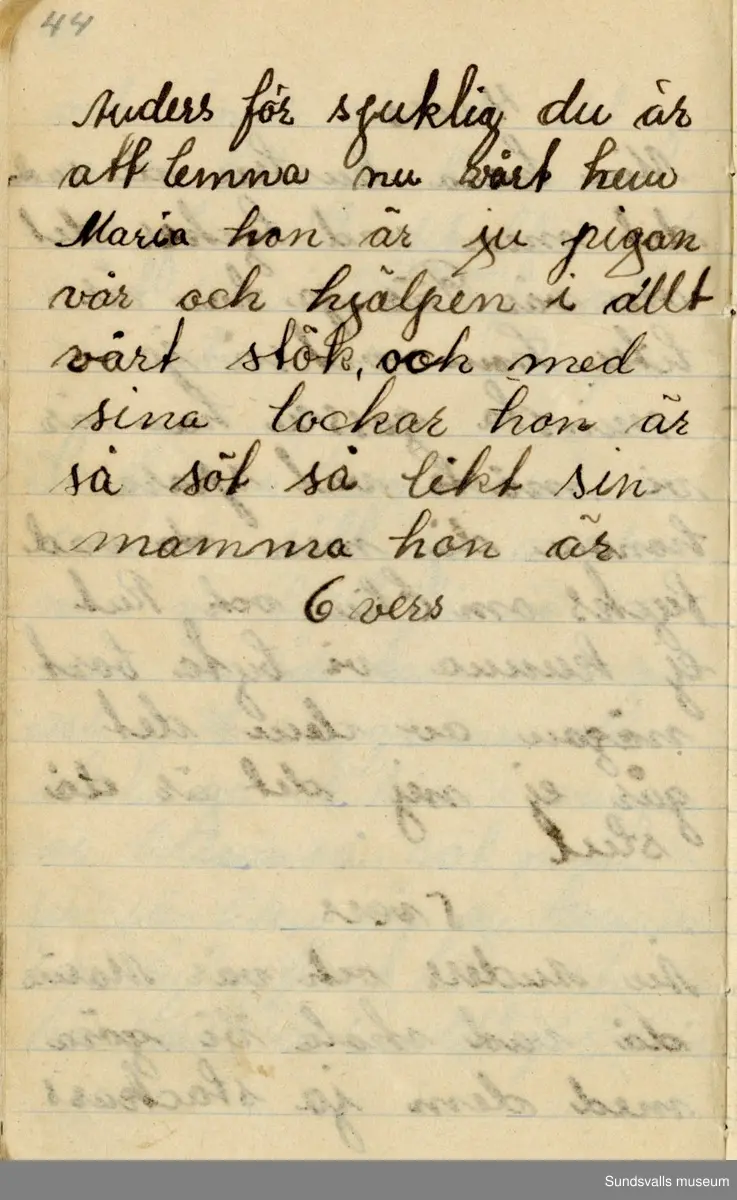 44
Anders för sjuklig du är
att lemna nu vårt hem
Maria hon är ju pigan
vår och hjälpen i allt
vårt stök, och med
sina lockar hon är
så söt så likt sin
mamma hon är
6 vers
Sundsvalls museum